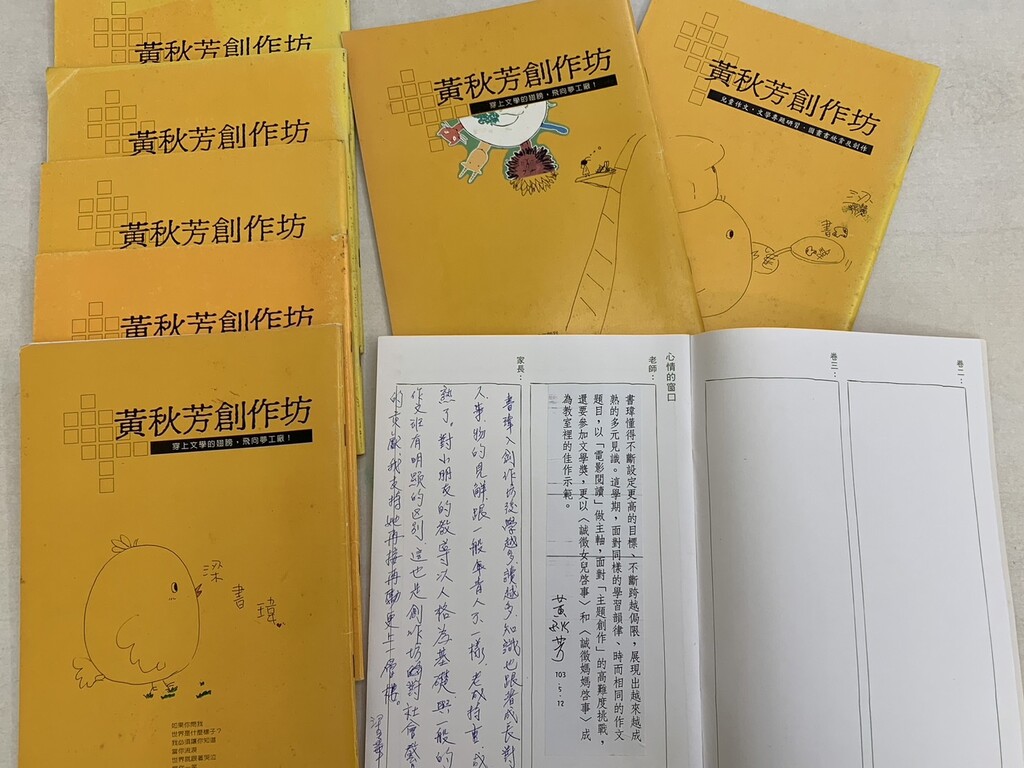 黃秋芳創作坊
黃秋芳創作坊
黃秋芳創作坊
黃秋芳創作坊
黃秋芳創作坊
穿上文學的翅膀，飛向夢工廠！
梁
書
瑋
如果你問我
世界是什麼樣子？
我必須讓你知道
當你流淚
世界就跟著哭泣
黃秋芳創作坊
穿上文學的翅膀，飛向夢工廠！
黃秋芳創作坊
兒童作文、文學專題研習、圖畫書欣賞及創作
梁
書
卷二：
卷三：
心情的窗口
老師：
書瑋懂得不斷設定更高的目標、不斷跨越侷限，展現出越來越成
熟的多元見識。這學期，面對同樣的學習韻律，時而相同的作文
題目，以「電影閱讀」做主軸，面對「主題創作」的高難度挑戰，
還要參加文學獎，更以〈誠徵女兒啓事〉和〈誠徵媽媽啓事〉成
為教室裡的佳作示範。
黃秋芳
103
5.12
家長：
書瑋入創作坊後學越多讀越多知識也跟著成長對
人事物的見解跟一般年青人不一樣，老成持重成
熟了。對小朋友的教導以人格為基礎與一般的
作文班有明顯的區別這也是創作坊對社會
的貢獻我支持她再接再勵更上一層樓。